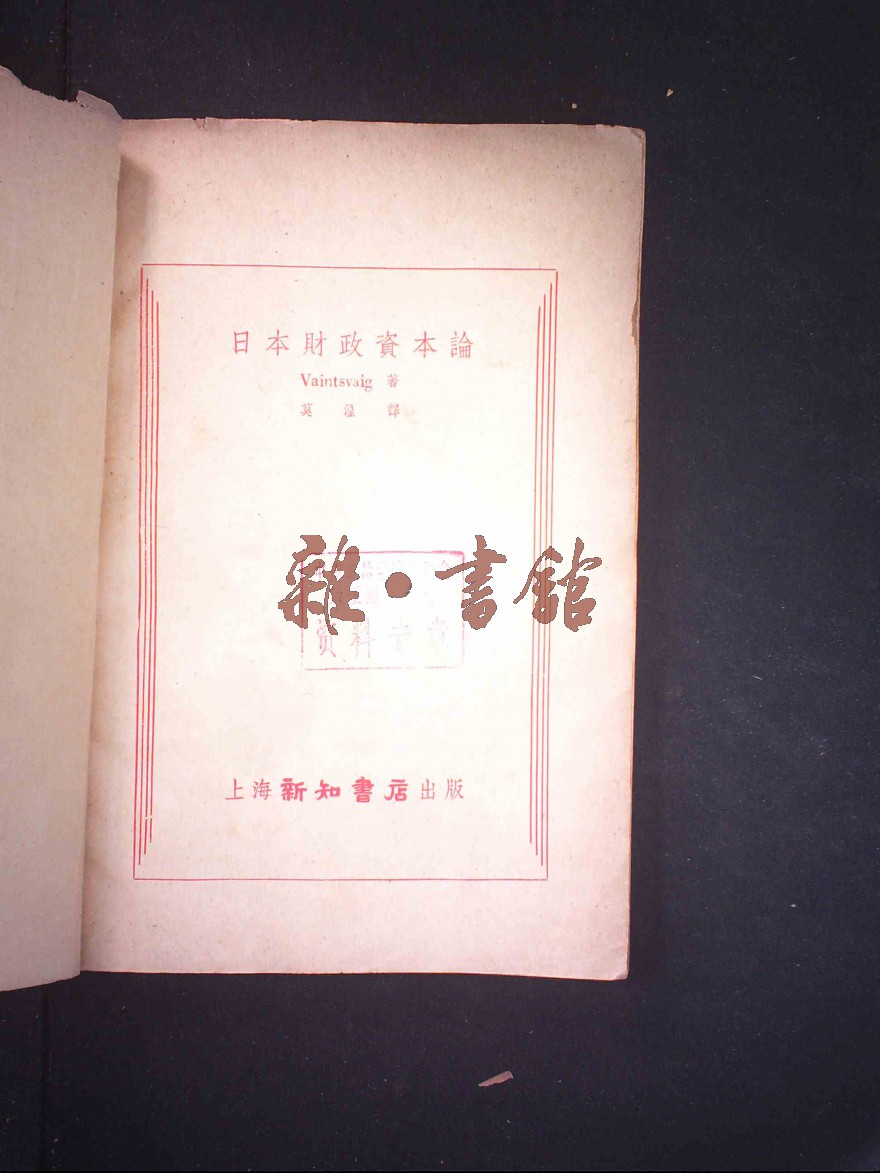 日本財政資本論
Vaintsvaig 著
英湟譯
雜·書館
资料专章
上海新知書店出版